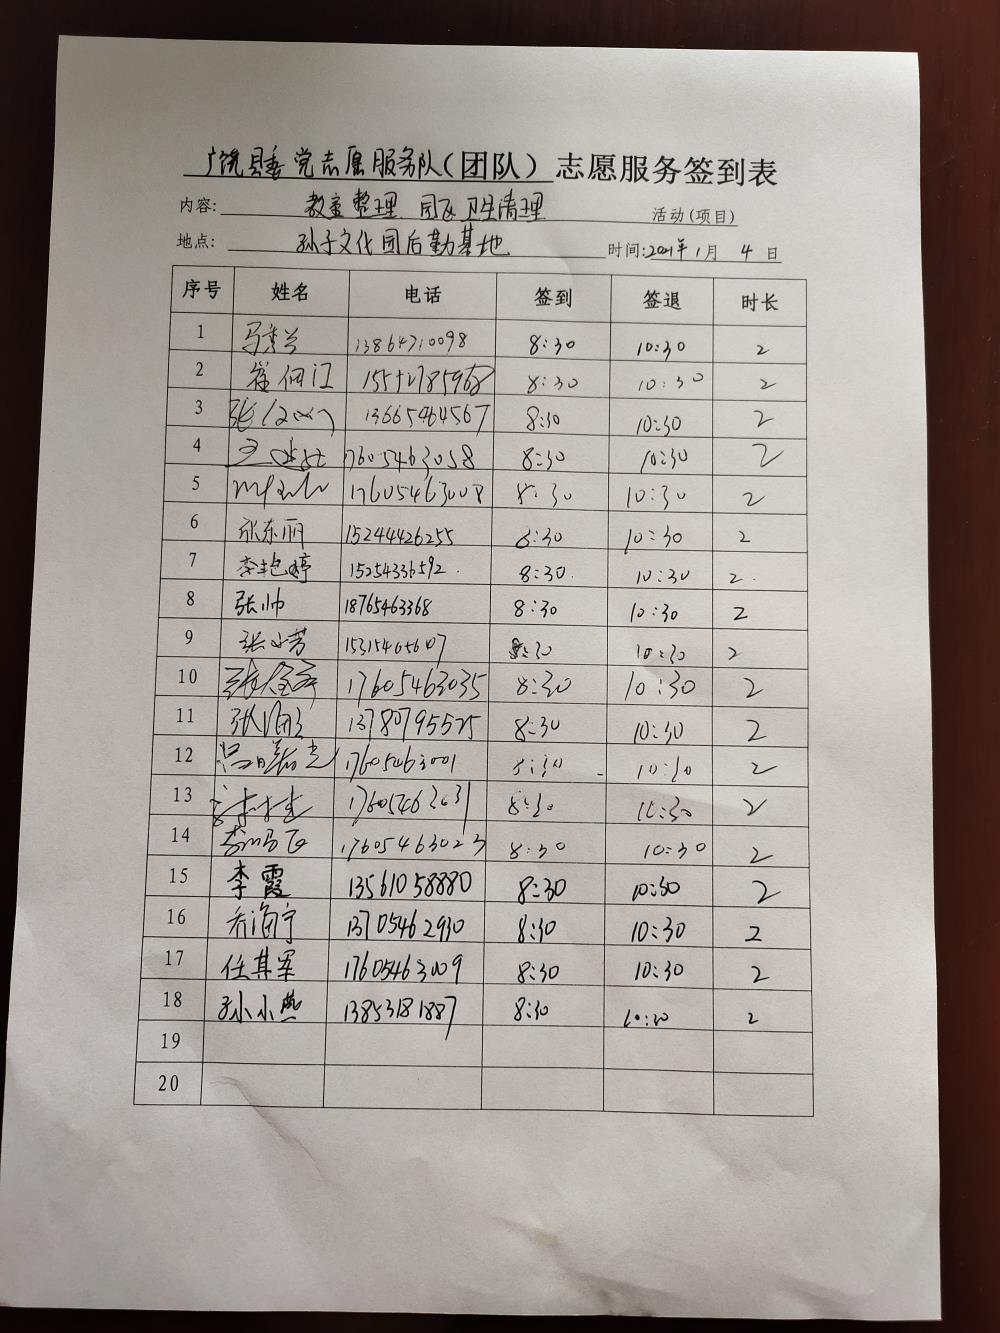 广饶县委党志愿服务队(团队)志愿服务签到表
内容: 教室整理 园区卫生清理 活动(项目)
地点: 孙子文化园后勤基地 时间:2021年1月4日
序号 姓名 电话 签到 签退 时长
1 马秀兰 13864710098 8:30 10:30 2
2 崔佃江 15542785968 8:30 10:30 2
3 张 13665464567 8:30 10:30 2
4 王 17605463058 8:30 10:30 2
5 17605463008 8:30 10:30 2
6 张东丽 15244426255 8:30 10:30 2
7 李艳婷 15254336592 8:30 10:30 2
8 张帅 18765463368 8:30 10:30 2
9 张小芳 15315465607 8:30 10:30 2
10 张 17605463035 8:30 10:30 2
11 张 13780795525 8:30 10:30 2
12 17605463001 8:30 10:30 2
13 17605463031 8:30 10:30 2
14 17605463023 8:30 10:30 2
15 李霞 13561058880 8:30 10:30 2
16 乔海宁 13705462930 8:30 10:30 2
17 任其军 17605463009 8:30 10:30 2
18 孙小燕 13853181887 8:30 10:30 2
19
20